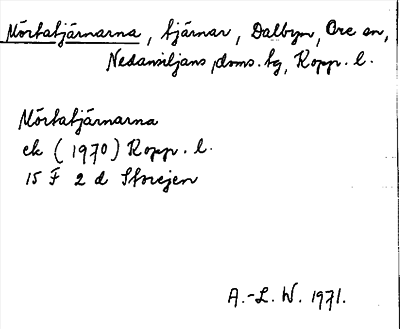 Mörtatjärnarna, tjärnar, Dalbyn, Ore sn,
Nedansiljans doms. tg, Kopp. l.
Mörtatjärnarna
ek (1970) Kopp. l.
15 F 2 d Storejen
A.-L. W. 1971.